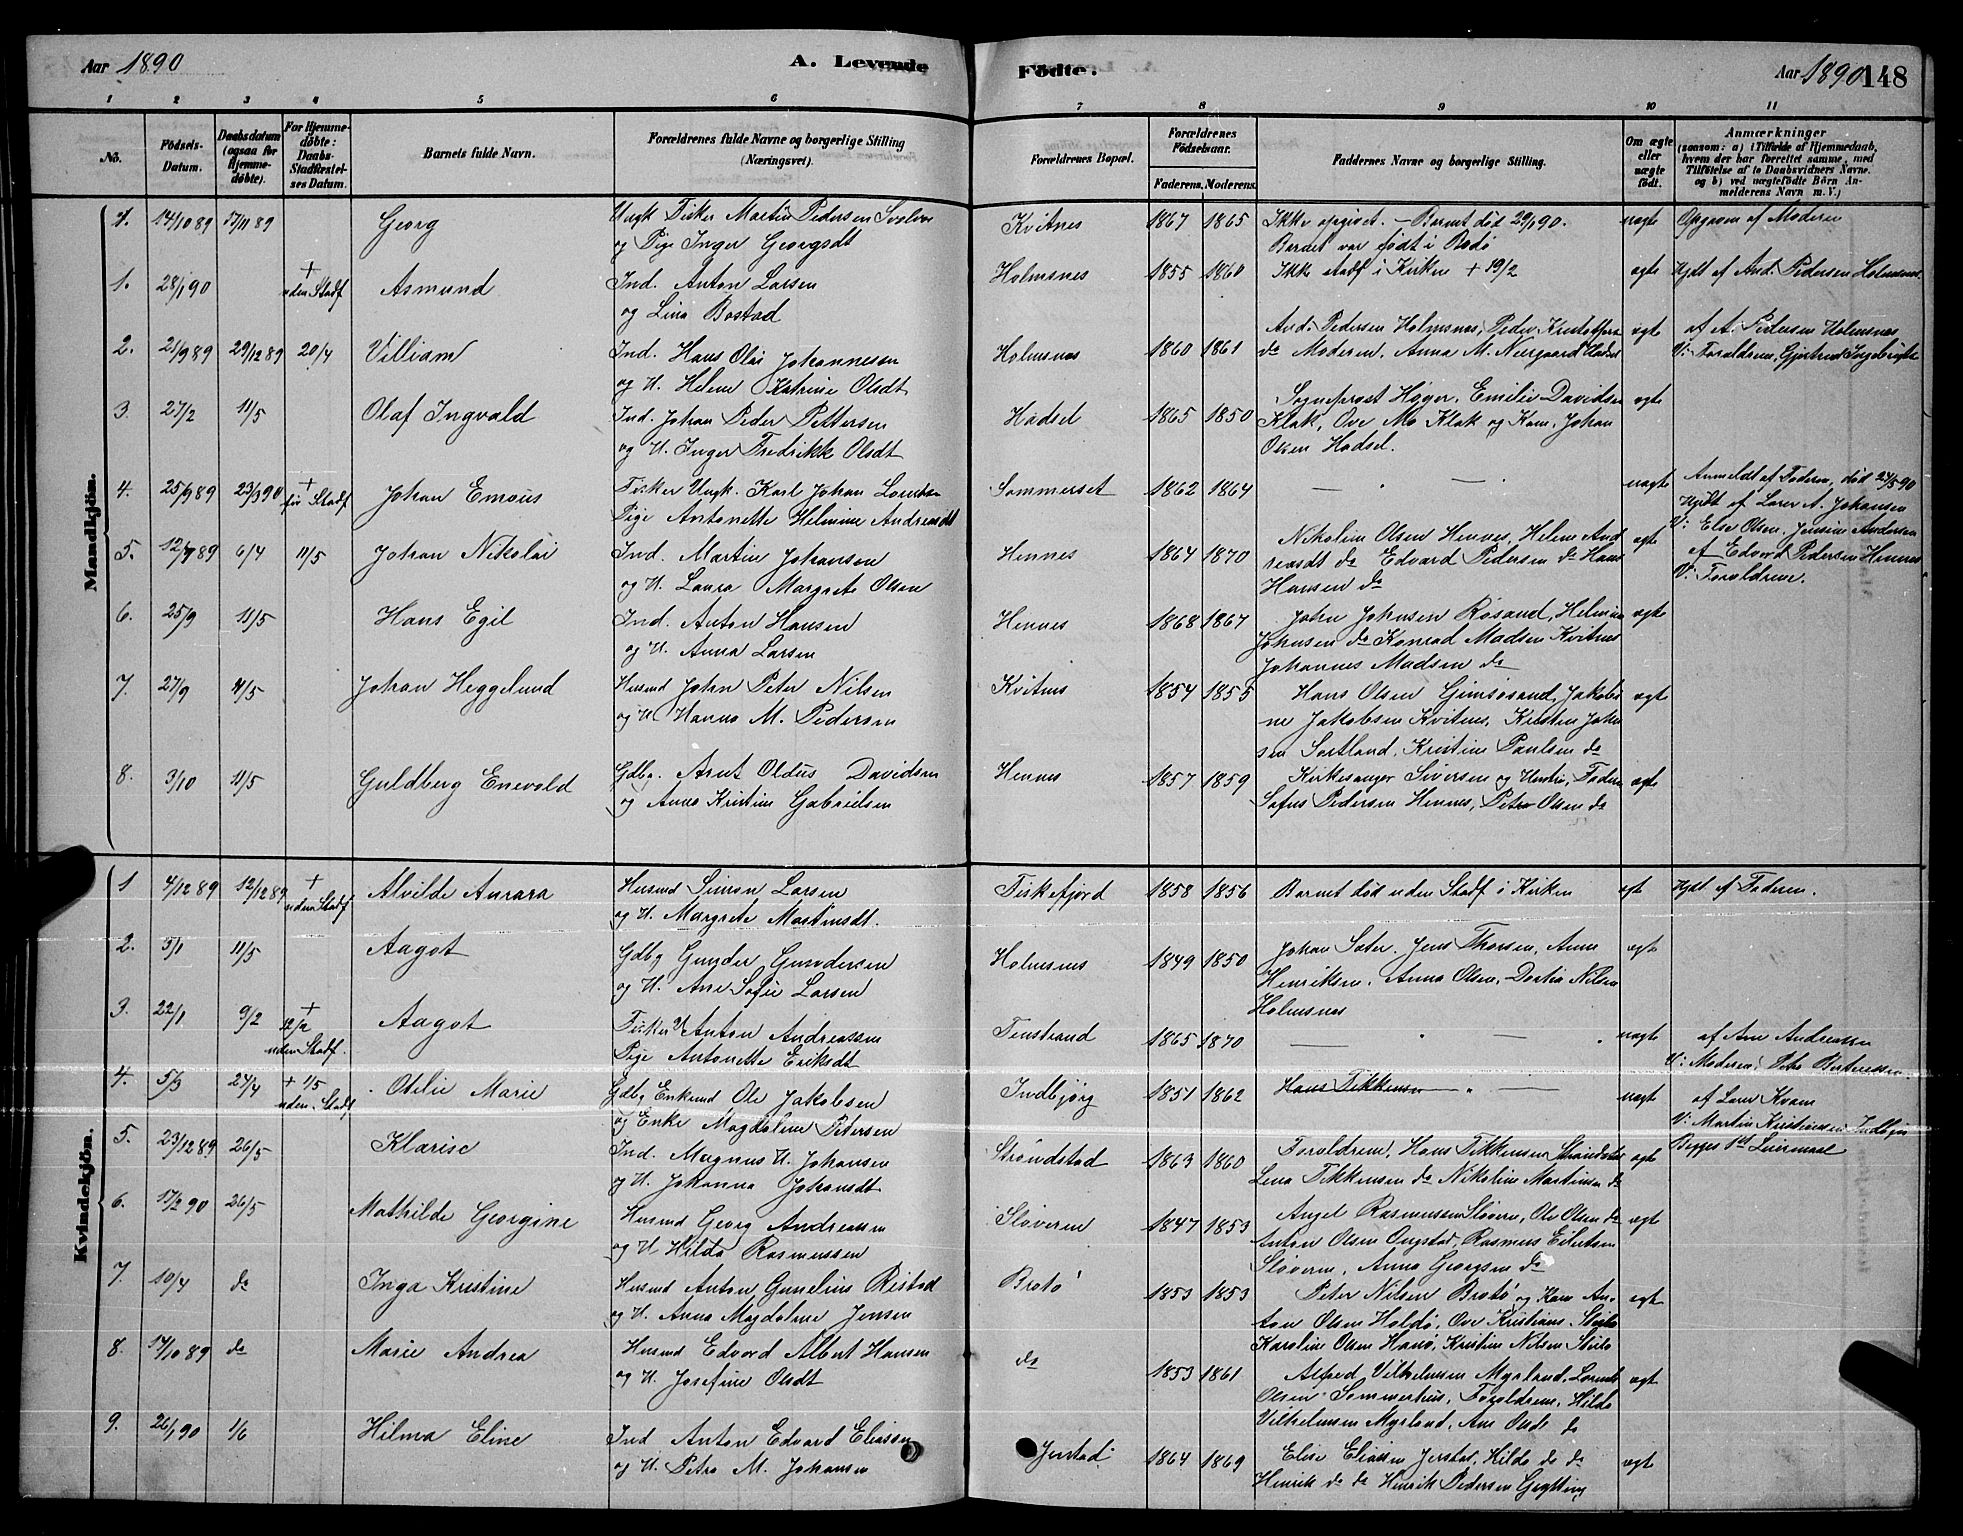 Aar 1890
A. Levende
Fødte.
Aar 1890
148
1 2 3 4 5 6 7 8 9 10 11
No.
Fødsels-Datum.
Daabsdatum (ogsaa for Hjemmedøbte).
For Hjemmedøbte: Daabs-Stadfæstelses Datum.
Barnets fulde Navn.
Forældrenes fulde Navne og borgerlige Stilling (Næringsvei).
Forældrenes Bopæl.
Forældrenes Fødselsaar.
Faderens. Moderens.
Faddernes Navne og borgerlige Stilling.
Om ægte eller uægte født.
Anmærkninger
(saasom: a) i Tilfælde af Hjemmedaab, hvem der har forrettet samme, med Tilføielse af to Daabsvidners Navne, og b) ved uægtefødte Børn Anmelderens Navn m. V.)
Mandkjön.
14/10 89 17/11 89 Georg
Ungk Fisker Martin Pedersen
og Pige Inger Georgsdt
Kvitnes 1867 1865
Ikke opgivet. – Barnet død 29/1 90.
Barnet var født i Bodø
uægte
Opgiven af Moderen
1. 28/1 90 + uden Stadf Asmund
Ind. Anton Larsen
og Lina Bostad
Holmsnes 1855 1860
Ikke stadf i Kirken + 19/2
ægte
Hjdt af And. Pedersen Holmsnes
2. 21/9 89 29/12 89 20/4 Villiam
Ind. Hans Olai Johannesen
og H. Helene Katrine Olsdt
Holmsnes 1860 1861
And. Pedersen Holmsnes, Peder
do Moderen, Anna M. Neergaard Hadsel
ægte
af A. Pedersen Holmsnes
V: Forældrene, Gjertrud
3. 27/2 11/5 Olaf Ingvald
Ind. Johan Peder Pettersen
og H. Inger Fredrikke Olsdt
Hadsel 1865 1850
Sogneprost Høyer, Emilie Davidsen
Klak, Ove Mo Klak og Kone, Johan
Olsen Hadsel.
ægte
4. 25/9 89 23/3 90 + før Stadf Johan Emæus
Fisker Ungk. Karl Johan
Pige Antonette Helmine Andreasdt
Sommerset 1862 1864
— " —
uægte
Anmeldt af Faderen, død 24/5 90
Hjdt af Lærer A. Johansen
V: Else Olsen, Jensine Andersen
5. 12/9 89 6/4 11/5 Johan Nikolai
Ind. Martin Johansen
og H. Laura Margrete Olsen
Hennes 1864 1870
Nikoline Olsen Hennes, Helene And
reasdt do Edvard Pedersen do Hans
Hansen do
ægte
af Edvard Pedersen Hennes
V: Forældrene.
6. 25/9 11/5 Hans Egil
Ind. Anton Hansen
og H. Anna Larsen
Hennes 1868 1867
John Johnsen Røsand, Helmine
Johnsen do Konrad Madsen Kvitnes
Johannes Madsen do
ægte
7. 27/9 4/5 Johan Heggelund
Husmd John Peter Nilsen
og H Hanna M. Pedersen
Kvitnes 1854 1855
Hans Olsen Gimsøsand, Jakobi
ne Jakobsen Kvitnes, Kristen Johan
sen Sortland, Kristine Paulsen do
ægte
8. 3/10 11/5 Guldberg Enevold
Gdbg. Arnt Oldus Davidsen
og Anna Kristine Gabrielsen
Hennes 1857 1859
Kirkesanger Siversen og Hustru, Faderen
Sofus Pedersen Hennes, Petra Olsen do
ægte
Kvindekjön.
1 4/12 89 12/12 89 + uden Stadf Alvilde Aurora
Husmd Simon Larsen
og H. Margrete Martinsdt.
Fiskefjord 1858 1856
Barnet død uden Stadf i Kirken
ægt
Hjdt af Faderen.
2. 5/1 11/5 Aagot
Gdbg Gunder Gundersen
og H. Ane Sofie Larsen
Holmsnes 1849 1850
Johan Sæter, Jens Thorsen, Anne
Henriksen, Anna Olsen, Dortea Nilsen
Holmsnes
ægt
3. 22/1 9/2 + 12/2 uden Stadf. Aagot
Fisker Anton Andreassen
Pige Antonette Eriksdt
Finstrand 1865 1870
— " — "
uægte
af Ane Andreassen
V: Moderen,
4. 5/3 27/4 + 1/5 uden Stadf Otilie Marie
Gdbg Enkmd Ole Jakobsen
og Enke Magdalene Petersen
Indbjørg 1851 1862
Hans Tikkensen " —
uægt
af Lærer Kvam
V: Martin Kristiansen
Begges 1st Leiermaal
5. 23/12 89 26/5 Klarise
Ind. Magnus H. Johansen
og H. Johanna Johansdt
Strøndstad 1863 1860
Forældrene, Hans Tikkensen Strandstad
Lena Tikkensen do Nikoline Martinsen do
ægt
6. 17/2 90 26/5 Mathilde Georgine
Husmd Georg Andreassen
og H Hilda Rasmussen
Sløveren 1847 1853
Angel Rasmussen Sløveren, Ole Olsen do
Anton Olsen Ongstad, Rasmus Eilertsen
Sløveren, Anna Georgsen do
ægt
7. 10/4 do Inga Kristine
Husmd Anton Gunelius Ristad
og H. Anna Magdalene Jensen
Brotø 1853 1853
Peter Nilsen Brotø og Kone An
ton Olsen Holdø, Ove Kristians.
Karoline Olsen Hanø, Kristine Nilsen
ægt
8. 14/10 89 do Marie Andrea
Husmd Edvard Albert Hansen
og H. Josefine Olsdt
do 1853 1861
Alfred Vilhelmsen Myrland,
Olsen Sommerhus, Forældrene, Hilda
Vilhelmsen Myrland, Ane Olsdt do
ægt
9. 26/1 90 1/6 Hilma Eline
Ind Anton Edvard Eliassen
og H. Petra M. Johansen
Jerstad 1864 1869
Elise Eliassen Jerstad, Hilda do do
Henrik do do Henrik Pedersen
ægt